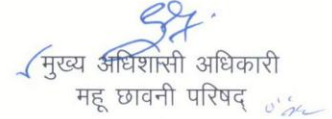 मुख्य अधिशासी अधिकारी
महू छावनी परिषद्